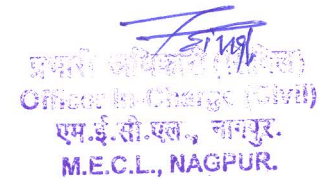 प्रभारी अधिकारी (सिविल)
Officer In-Charge (Civil)
एम.ई.सी.एल., नागपुर.
M.E.C.L., NAGPUR.